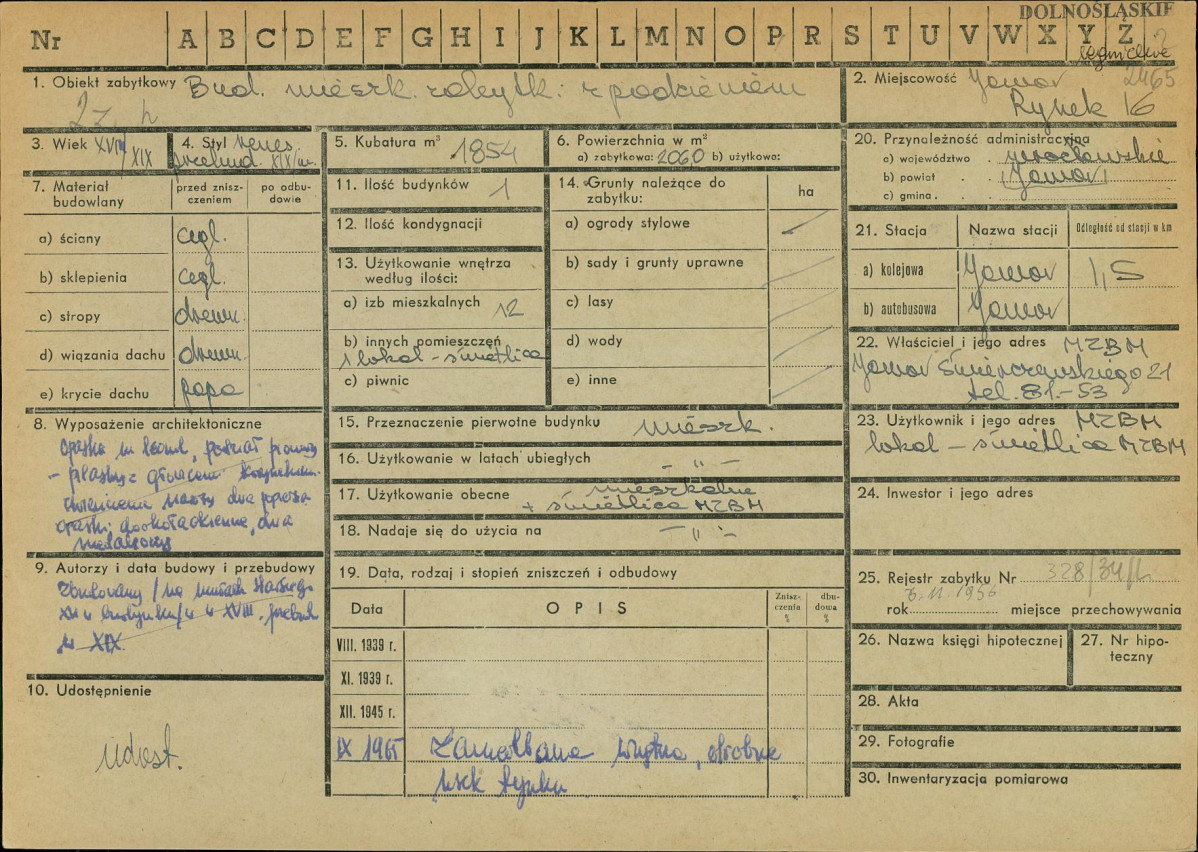 DOLNOŚLĄSKIE
Nr A B C D E F G H I J K L M N O P R S T U V W X Y Z
legnickie
1. Obiekt zabytkowy Bud. mieszk. zabytk. z podcieniem
2. Miejscowość Jawor 2465
Rynek 16
3. Wiek XVIII/XIX
4. Styl renes.
przebud. XIX w.
5. Kubatura m³ 1854
6. Powierzchnia w m²
a) zabytkowa: 2060 b) użytkowa:
20. Przynależność administracyjna
a) województwo wrocławskie
b) powiat Jawor
c) gmina
7. Materiał budowlany
przed zniszczeniem
po odbudowie
a) ściany cegl.
b) sklepienia cegl.
c) stropy drewn.
d) wiązania dachu drewn.
e) krycie dachu papa
11. Ilość budynków 1
12. Ilość kondygnacji
13. Użytkowanie wnętrza
według ilości:
a) izb mieszkalnych 12
b) innych pomieszczeń
1 lokal - świetlica
c) piwnic
14. Grunty należące do
zabytku:
ha
a) ogrody stylowe
b) sady i grunty uprawne
c) lasy
d) wody
e) inne
21. Stacja Nazwa stacji Odległość od stacji w km
a) kolejowa Jawor 1,5
b) autobusowa Jawor
22. Właściciel i jego adres MZBM
Jawor Świerczewskiego 21
tel. 81-53
8. Wyposażenie architektoniczne
15. Przeznaczenie pierwotne budynku mieszk.
16. Użytkowanie w latach ubiegłych - " -
17. Użytkowanie obecne mieszkalne
+ świetlica MZBM
18. Nadaje się do użycia na - " -
23. Użytkownik i jego adres MZBM
lokal - świetlica MZBM
24. Inwestor i jego adres
9. Autorzy i data budowy i przebudowy
w XIX
10. Udostępnienie
udost.
19. Data, rodzaj i stopień zniszczeń i odbudowy
Data OPIS Zniszczenia % dbudowa %
VIII. 1939 r.
XI. 1939 r.
XII. 1945 r.
IX 1965
25. Rejestr zabytku Nr 328/34/L
rok 6.11.1956 miejsce przechowywania
26. Nazwa księgi hipotecznej
27. Nr hipoteczny
28. Akta
29. Fotografie
30. Inwentaryzacja pomiarowa